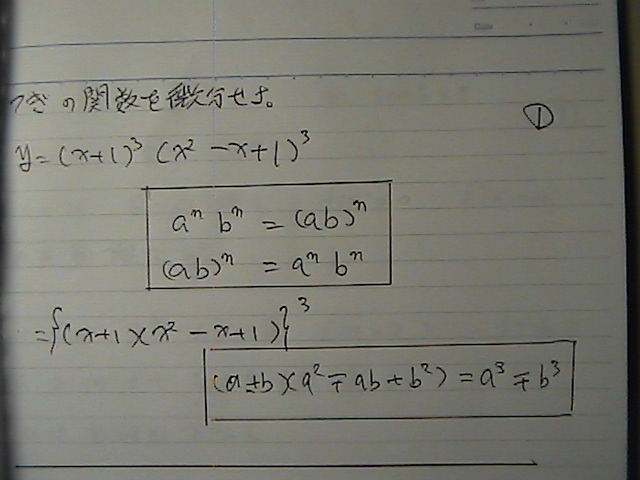 つぎの関数を微分せよ。
①
y = (x+1)³ (x² - x+1)³
aⁿ bⁿ = (ab)ⁿ
(ab)ⁿ = aⁿ bⁿ
= {(x+1)(x² - x+1)}³
(a±b)(a² ∓ ab + b²) = a³ ∓ b³